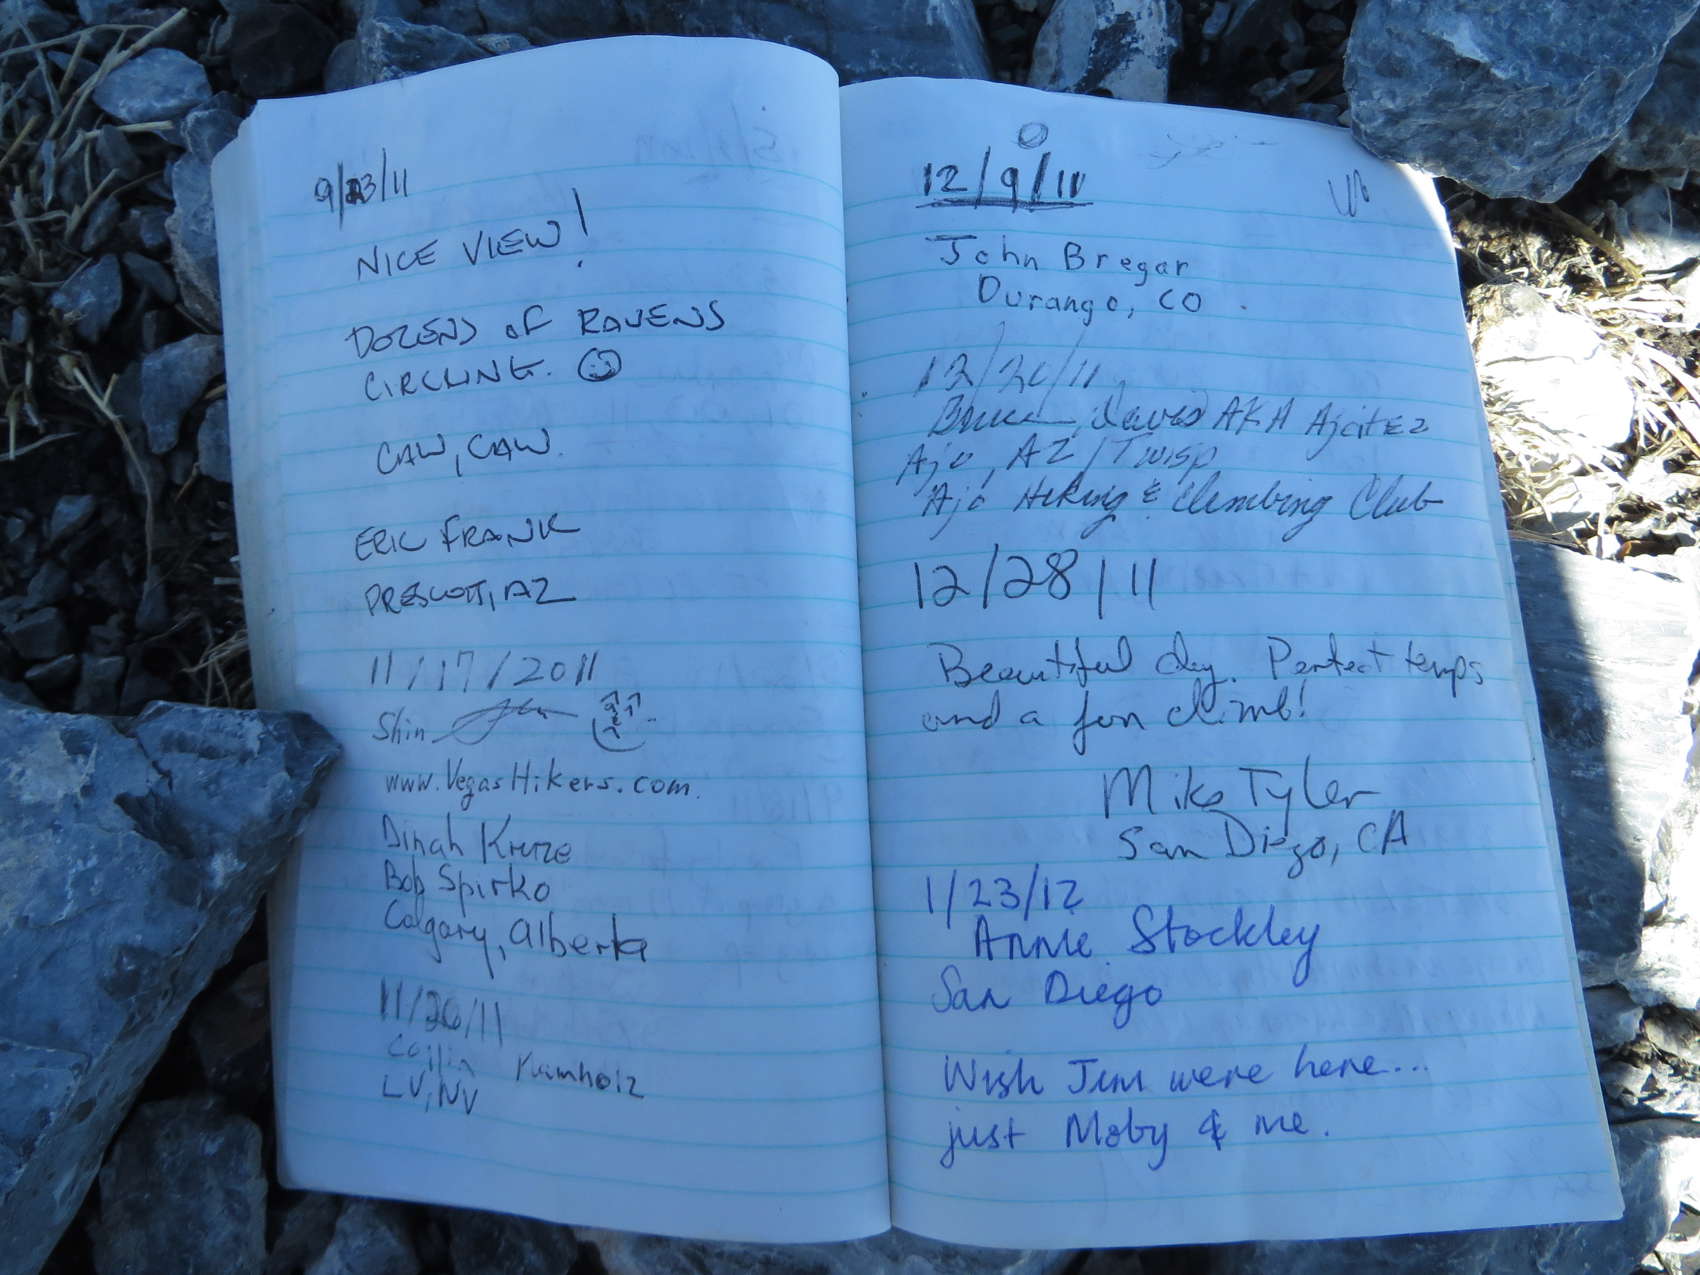 9/23/11
NICE VIEW!
DOZENS OF RAVENS
CIRCLING.
CAW, CAW.
ERIC FRANK
PRESCOTT, AZ
11/17/2011
Shin
www.VegasHikers.com.
Dinah Kruze
Bob Spirko
Calgary, Alberta
11/26/11
Collin Krumholz
LV, NV
12/9/11
John Bregar
Durango, CO
12/20/11
Bruce Davis AKA Ajoitez
Ajo, AZ / Twisp
Ajo Hiking & Climbing Club
12/28/11
Beautiful day. Perfect temps
and a fun climb!
Mike Tyler
San Diego, CA
1/23/12
Annie Stockley
San Diego
Wish Jim were here...
just Moby & me.